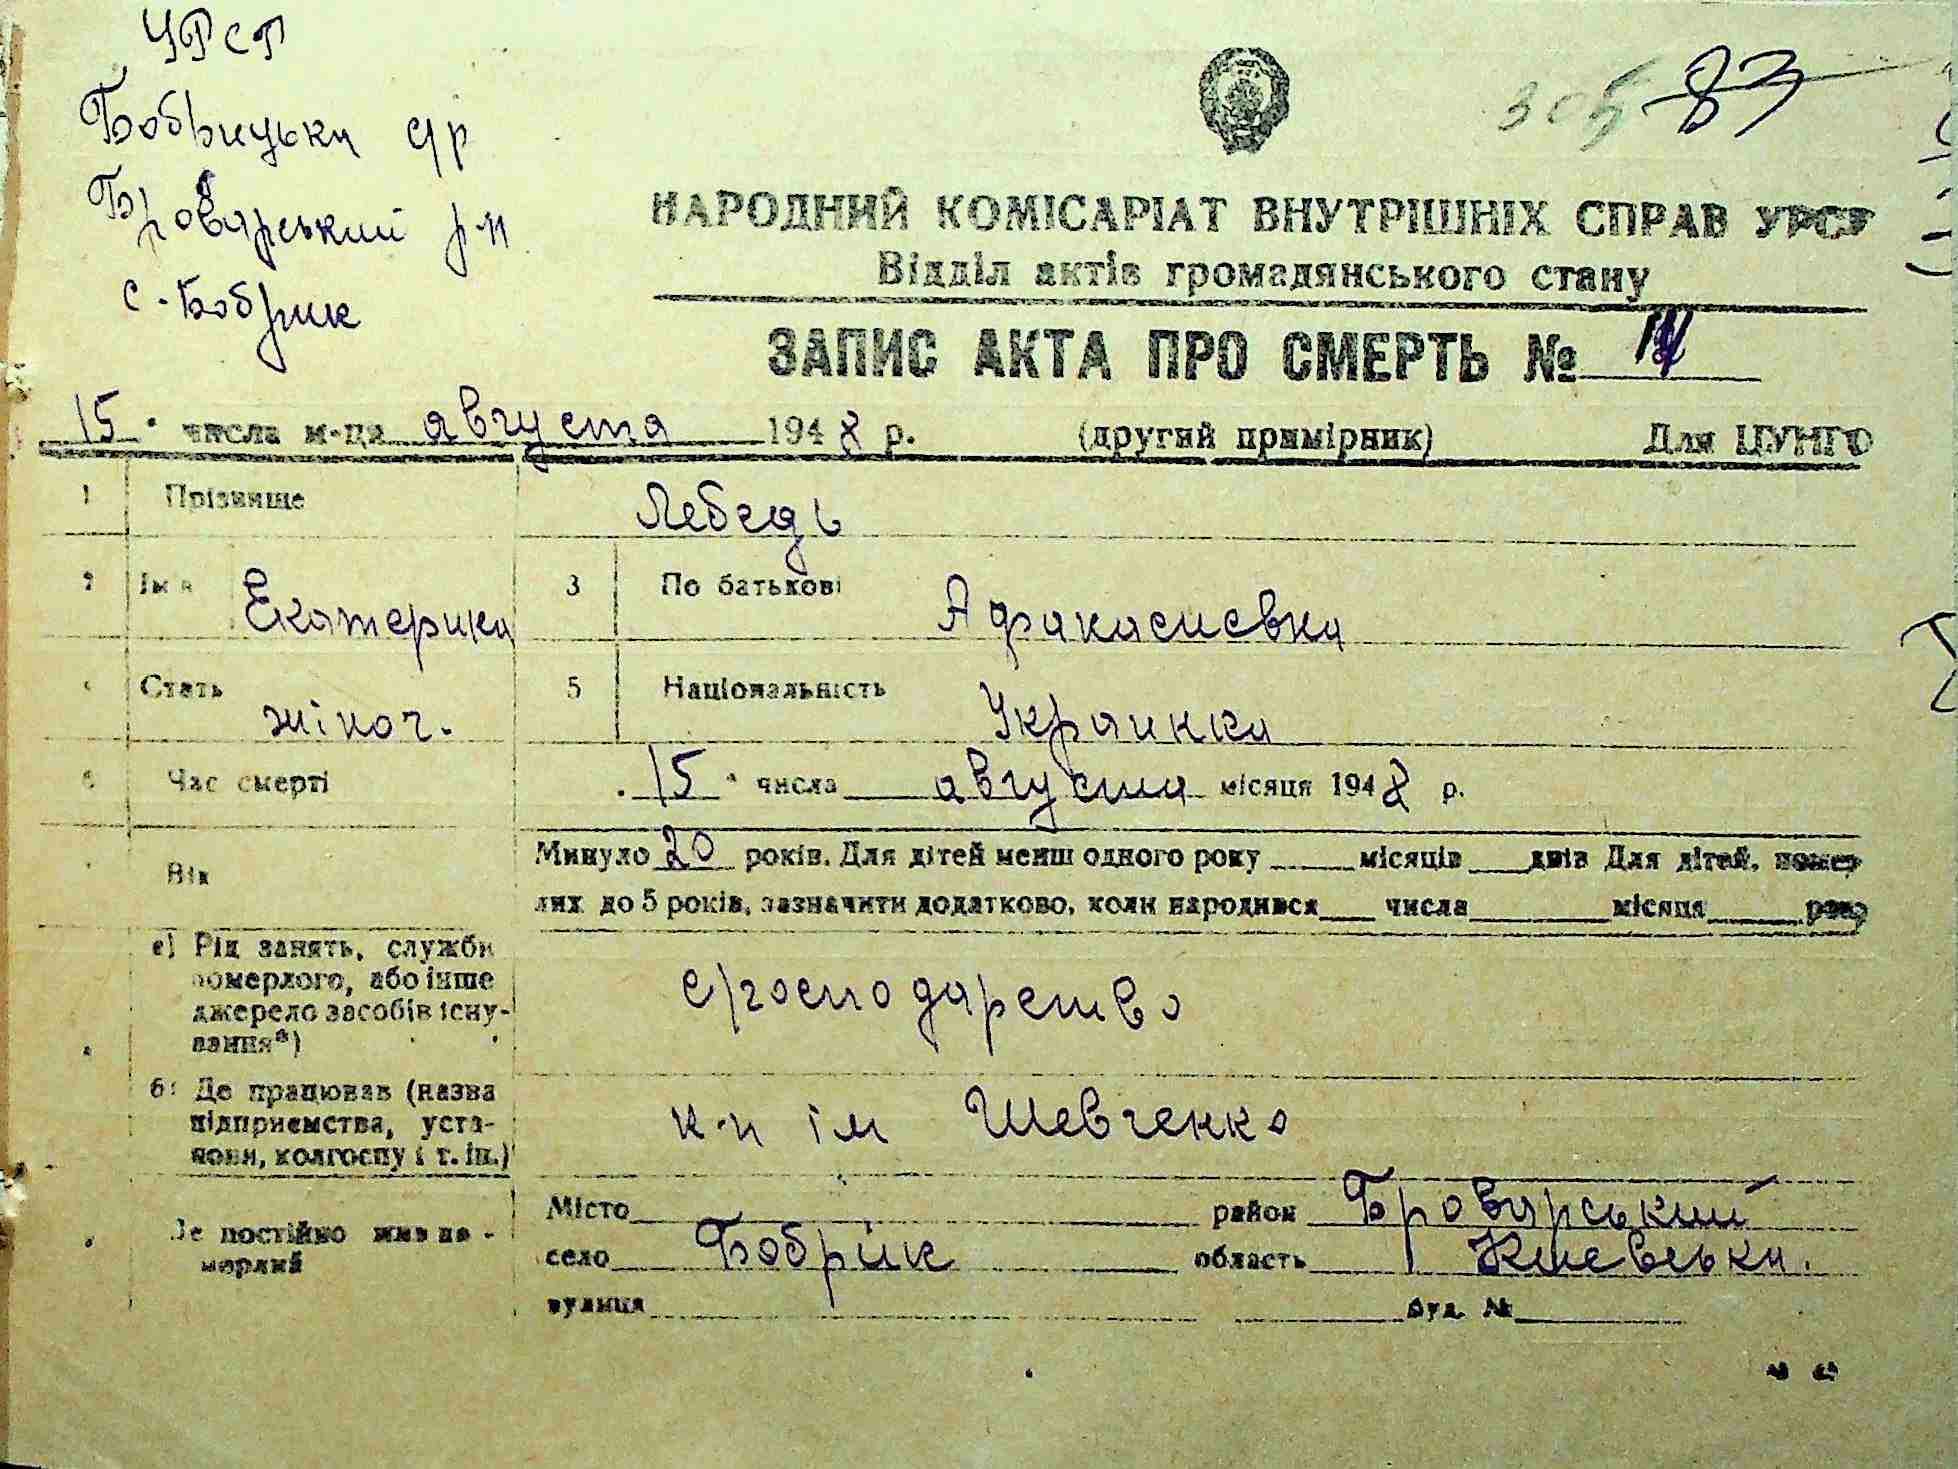 УРСР
Бобрицька с/р
Броварський р-н
с. Бобрик
305 83
НАРОДНИЙ КОМІСАРІАТ ВНУТРІШНІХ СПРАВ УРСР
Відділ актів громадянського стану
ЗАПИС АКТА ПРО СМЕРТЬ №
15 числа м-ця августа 1948 р. (другий примірник) Для ЦУНГО
1 Прізвище Лебедь
2 Ім'я Екатерина 3 По батькові Афанасиевна
Стать жіноч. 5 Національність Украинка
6 Час смерті 15 числа августа місяця 1948 р.
Вік
Минуло 20 років. Для дітей менш одного року місяців днів Для дітей, помер-
лих до 5 років, зазначити додатково, коли народився числа місяця року
а) Рід занять, служби
померлого, або інше
джерело засобів існу-
вання*)
с/господарство
б) Де працював (назва
підприємства, уста-
нови, колгоспу і т. ін.)
к-п ім Шевченко
Де постійно жив по-
мерлий
Місто район Броварський
село Бобрік область Киевська.
вулиця буд. №